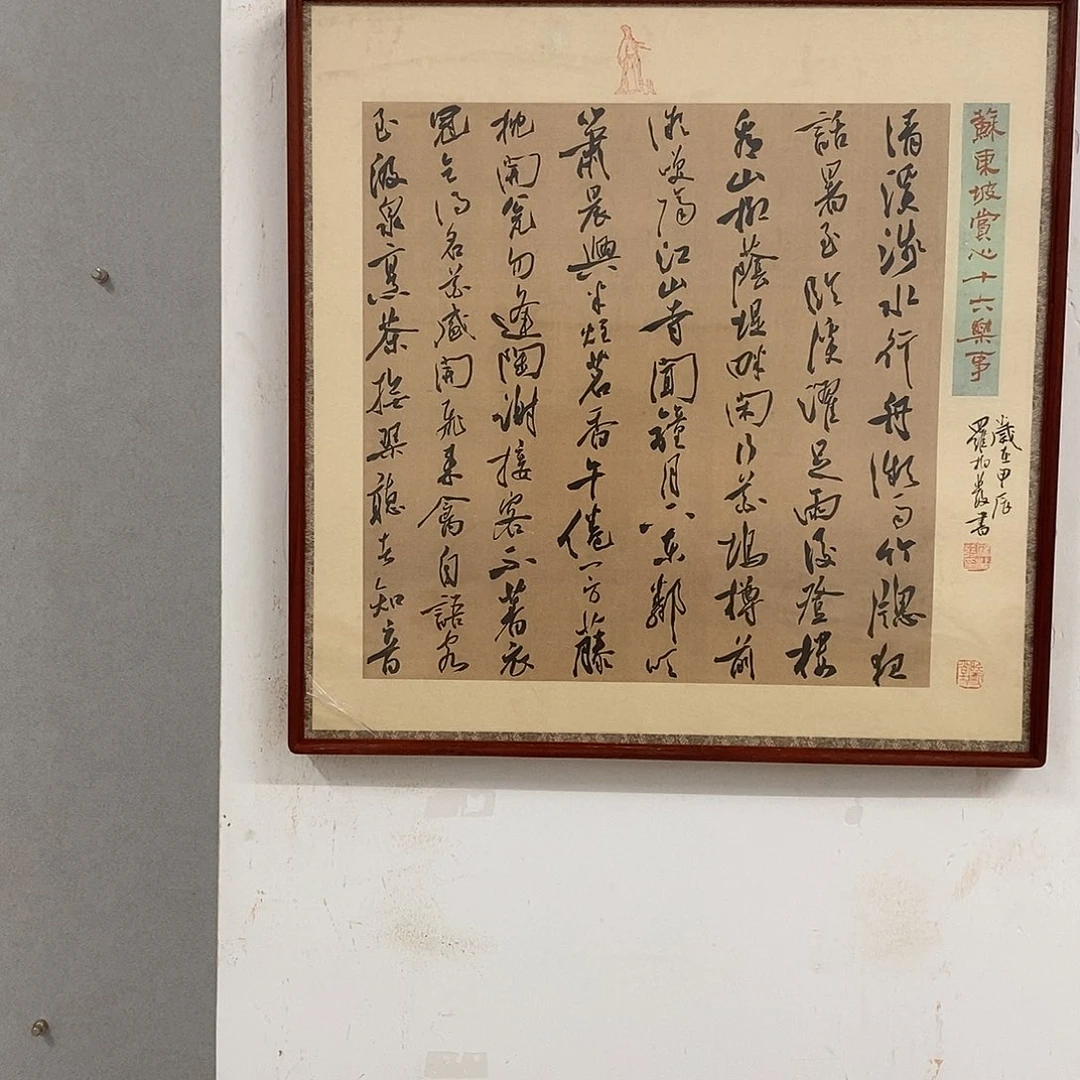 蘇東坡賞心十六樂事
歲在甲辰
羅書
清溪淺水行舟微雨竹牕夜
話暑至臨溪濯足雨後登樓
看山柳蔭堤畔閑行花塢樽前
微笑隔江山寺聞鐘月下東鄰吹
簫晨興半炷茗香午倦一方藤
枕開甕勿逢陶謝接客不著衣
冠乞得名花盛開飛來禽自語客
至汲泉烹茶撫琴聽者知音